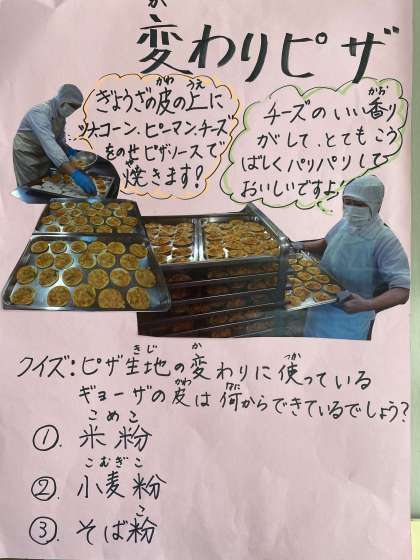 変わりピザ
ぎょうざの皮の上に
ツナコーン、ピーマン、チーズ
をのせピザソースで
焼きます!
チーズのいい香り
がして、とてもこう
ばしくパリパリして
おいしいですよ!!
クイズ:ピザ生地の変わりに使っている
ギョーザの皮は何からできているでしょう?
①. 米粉
②. 小麦粉
③. そば粉